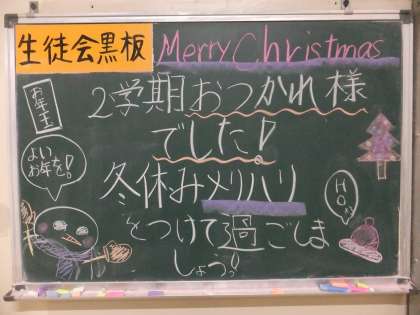 生徒会黒板
Merry Christmas
お年玉
2学期おつかれ様
でした!
よい
お年を!
冬休みメリハリ
をつけて過ごしま
しょう!
HO